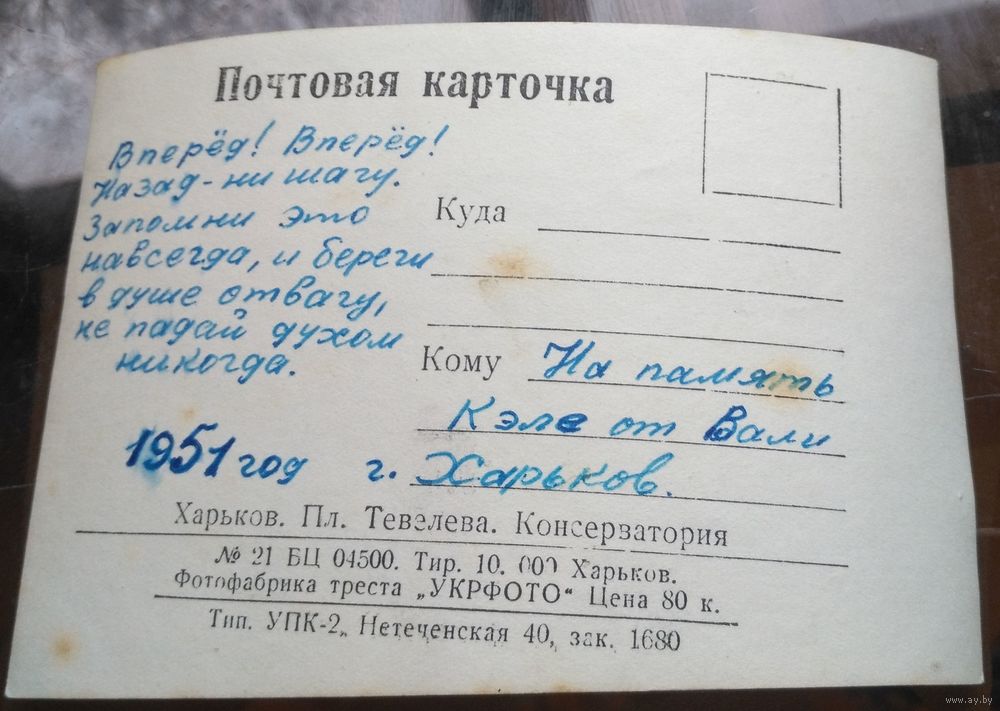 Почтовая карточка
Вперёд! Вперёд!
Назад - ни шагу.
Запомни это
навсегда, и береги
в душе отвагу,
не падай духом
никогда.
1951 год г. Харьков.
Куда
Кому На память
Кэле от Вали
Харьков. Пл. Тевелева. Консерватория
№ 21 БЦ 04500. Тир. 10.000 Харьков.
Фотофабрика треста „УКРФОТО“ Цена 80 к.
Тип. УПК-2, Нетеченская 40, зак. 1680
www.ay.by